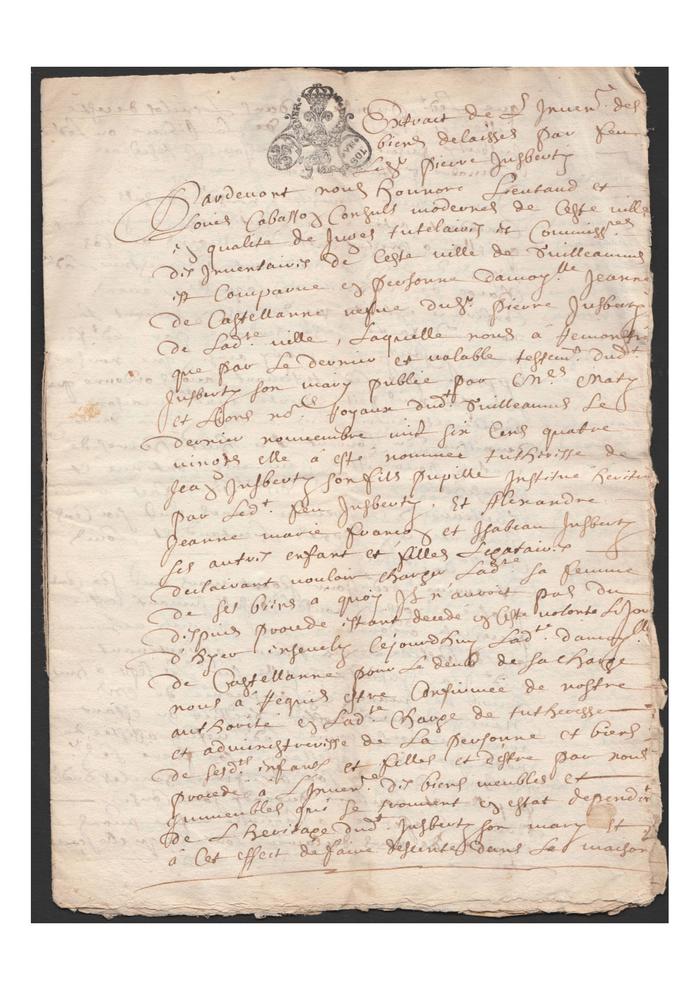 Extrait de l'Inven.re des
biens delaisses par feu
Sr Pierre Jusberty
Pardevant nous Honnoré Lieutaud et
Louis Cabasson Consuls modernes de Ceste ville
en qualité de Juges tutelaires et Commiss.res
des Inventaires de Ceste ville de Guilleaumes
est Comparue en personne damoy.lle Jeanne
de Castellanne vefve du Sr Pierre Jusberty
de Lad.te ville, Laquelle nous a Remonstré
que par Le dernier et valable testam.t dud.t
Jusberty son mary publié par M.es Maty
et nores Royaux dud.t Guilleaumes Le
dernier novembre mil six Cens quatre
vingts elle à esté nommée tutherisse de
Jean Jusberty son fils Pupille Institué heritier
par Led.t feu Jusberty, Et Alexandre
Jeanne marie Francoy et Isabeau Jusberty
ses autres enfant et filles Legataires
declairant vouloir charger Lad.te sa femme
de ses biens à quoy Il n'auroit pas du
despuis procedé estant decedé en ceste volonté Le Jour
d'hyer ensevely Cejourdhuy Lad.te damoy.lle
de Castellanne pour Le deub de sa charge
nous à Requis estre Confirmée de nostre
authorité en Lad.te Charge de tutheresse
et administreresse de La personne et biens
de sesd.ts enfans et filles et d'estre par nous
procedé à L'Inven.re des biens meubles et
Immeubles qui se trouvent en estat dependant
de L'Heritage dud.t Jusberty son mary et
à Cet effect de faire descente dans La maison